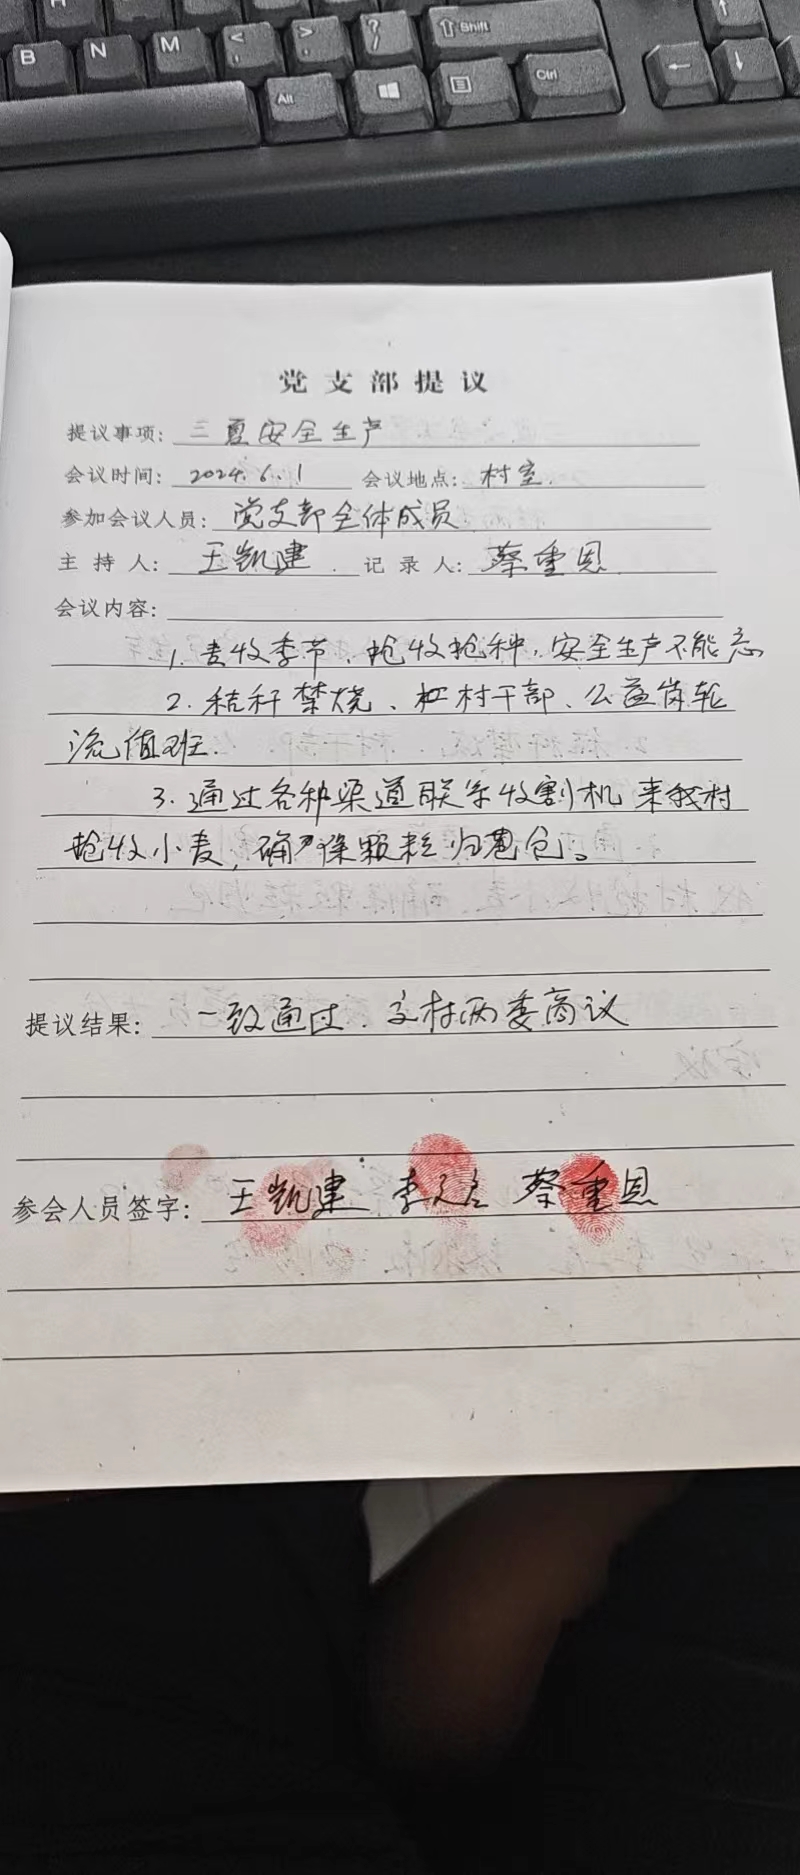 B N M < , > . ? / Shift
Alt Ctrl
党支部提议
提议事项: 三夏安全生产
会议时间: 2024.6.1 会议地点: 村室.
参加会议人员: 党支部全体成员
主持人: 王凯建 记录人: 蔡重恩
会议内容:
1. 麦收季节、抢收抢种,安全生产不能忘
2. 秸秆禁烧、村干部、公益岗轮
流值班.
3. 通过各种渠道联系收割机来我村
抢收小麦,确保颗粒归仓。
提议结果: 一致通过.交村两委商议
参会人员签字: 王凯建 李 蔡重恩